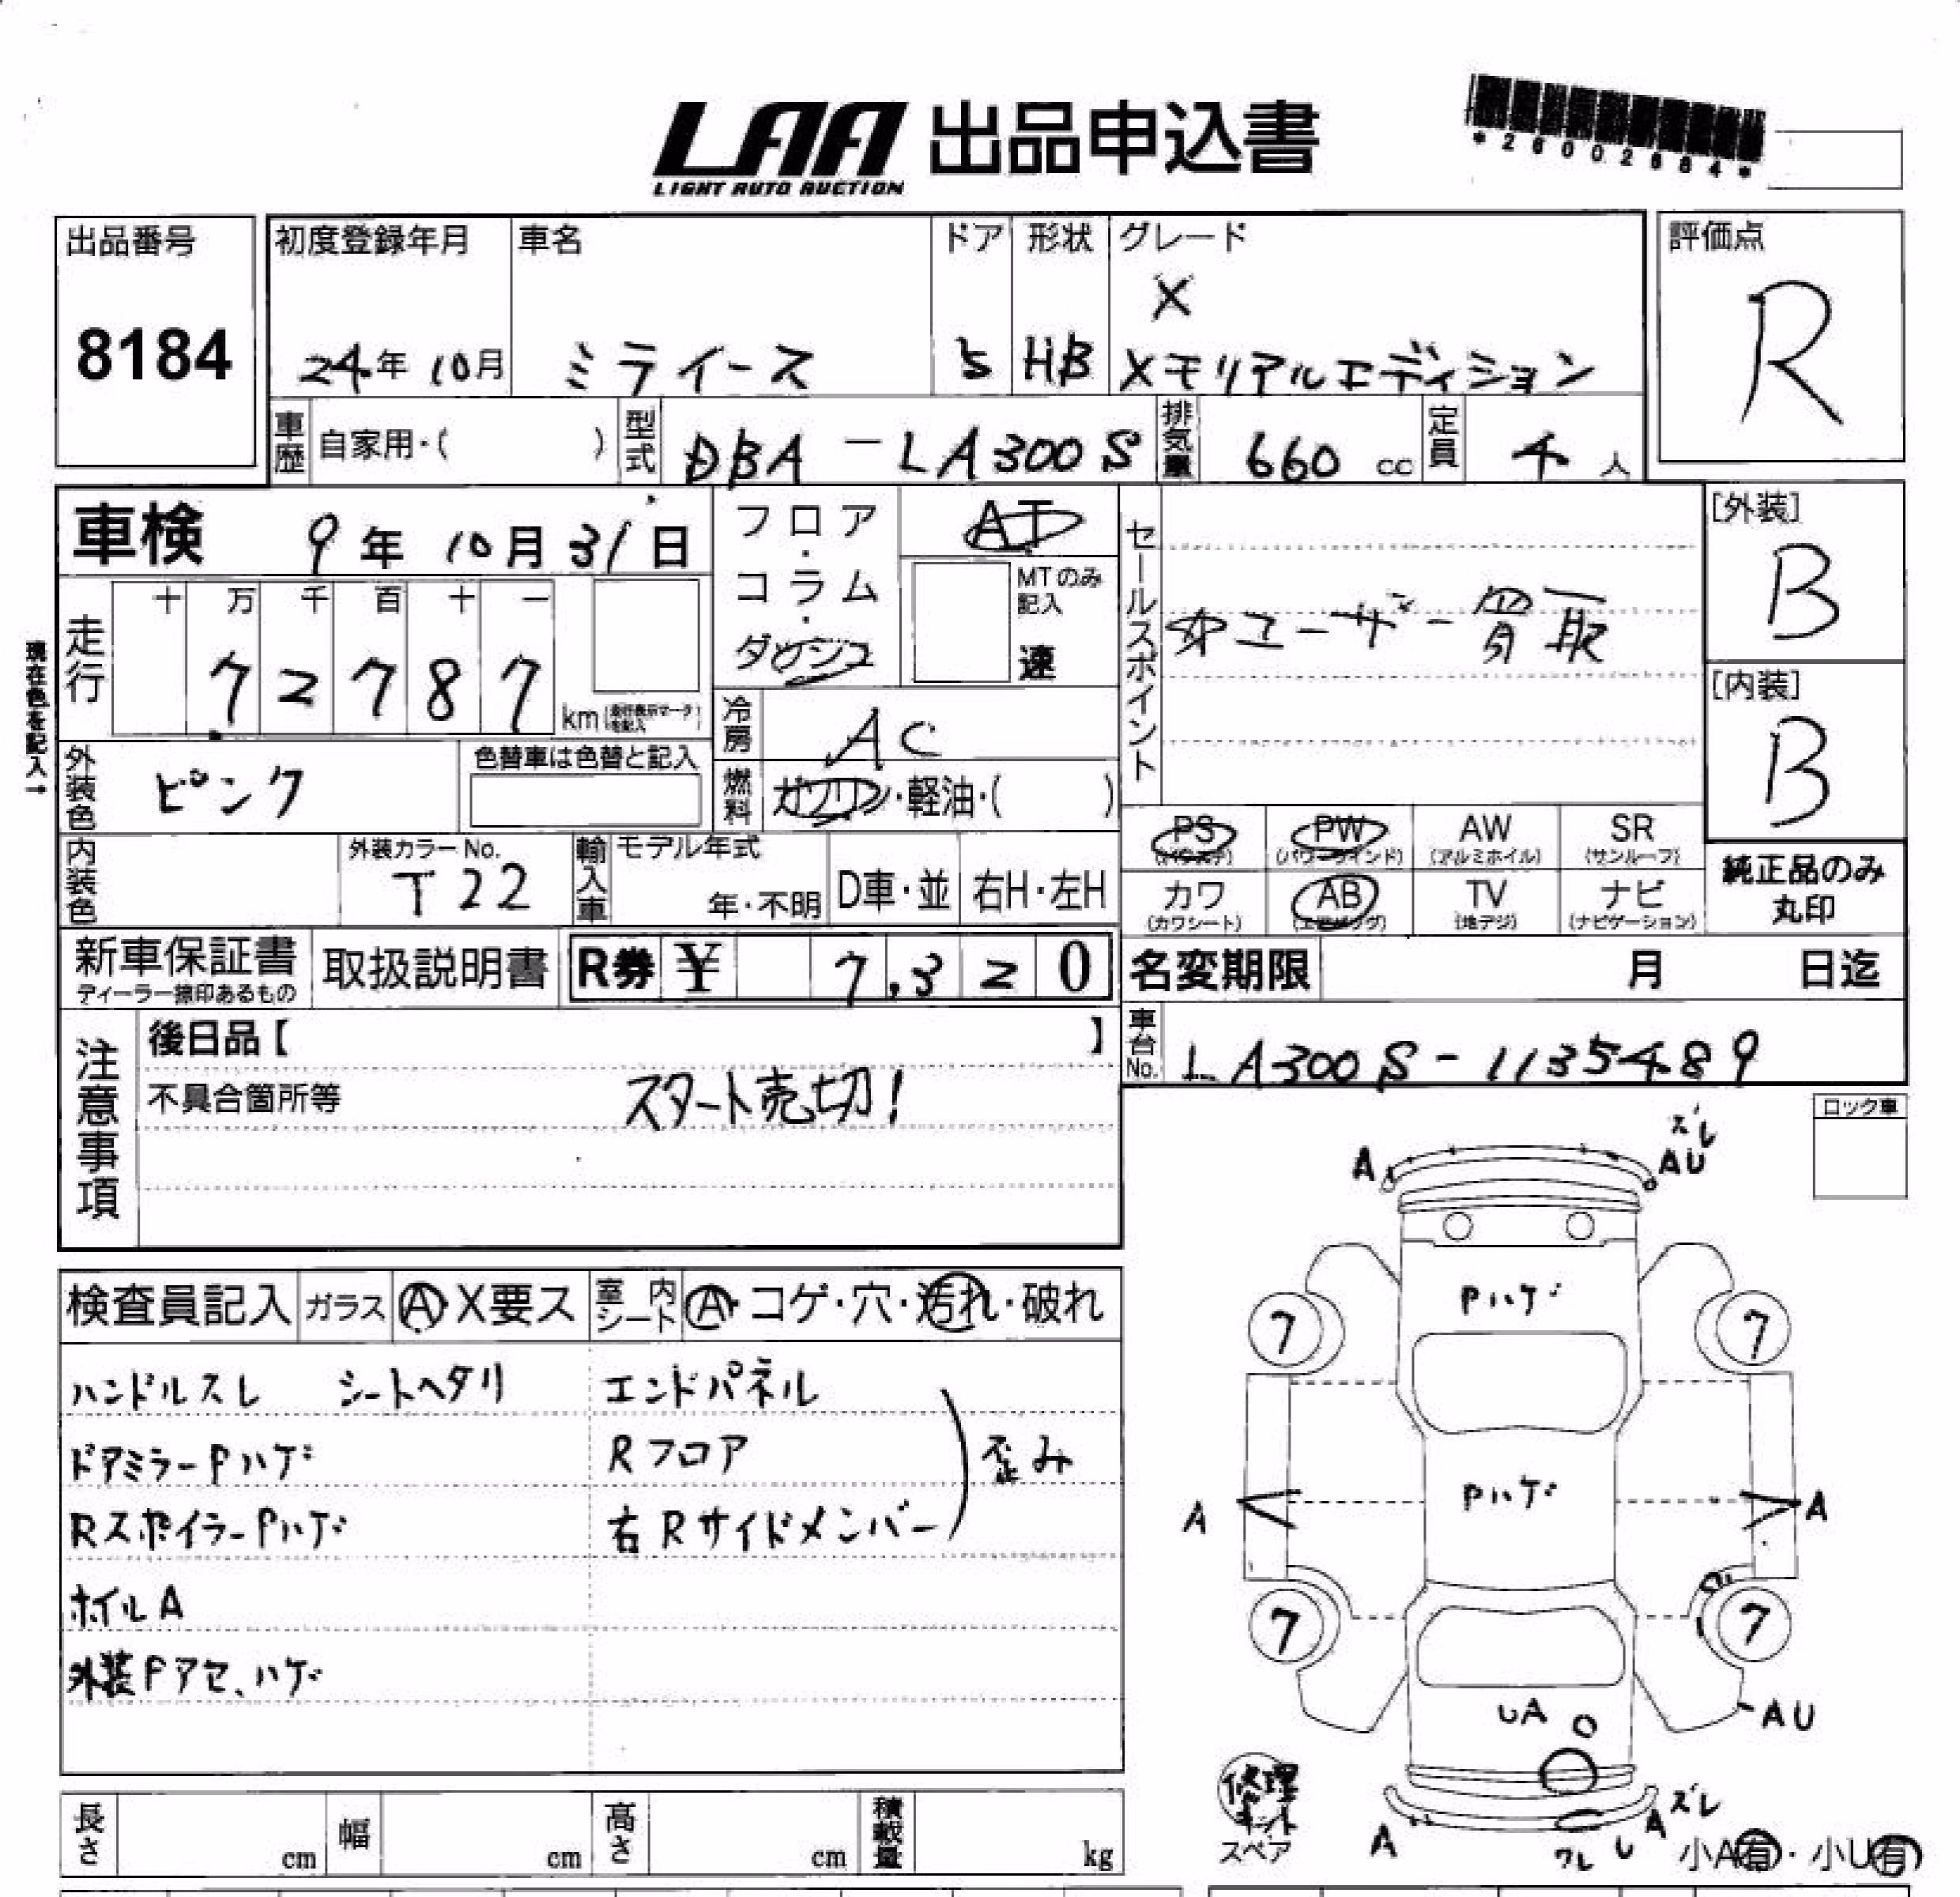 LAA 出品申込書
LIGHT AUTO AUCTION
*26002684*
出品番号 初度登録年月 車名 ドア 形状 グレード 評価点
8184 24年10月 ミライース 5 HB X R
Xモリアルエディション
車歴 自家用・( ) 型式 DBA-LA300S 排気量 660 cc 定員 4 人
車検 9年10月31日
フロア・コラム・ダッシュ AT
MTのみ記入 速
セールスポイント
ユーザー買取
[外装] B
[内装] B
現在色を記入→
走行 十 万 千 百 十 一
72787 km
冷房 AC
外装色 ピンク 色替車は色替と記入
燃料 ガソリン・軽油・( )
PS PW AW SR
(パワステ) (パワーウインド) (アルミホイル) (サンルーフ)
カワ AB TV ナビ
(カワシート) (エアバッグ) (地デジ) (ナビゲーション)
純正品のみ
丸印
内装色 外装カラーNo. T22 輸入車 モデル年式 年・不明 D車・並 右H・左H
新車保証書 取扱説明書 R券 ¥ 7,320
ディーラー捺印あるもの
名変期限 月 日迄
注意事項
後日品【 】
不具合箇所等 スタート売切!
車台No. LA300S-1135489
ロック車
検査員記入 ガラス A・X要ス 室内シート A・コゲ・穴・汚れ・破れ
ハンドルスレ シートヘタリ エンドパネル
ドアミラーPハゲ Rフロア 歪み
RスポイラーPハゲ 右Rサイドメンバー
ホイルA
外装Pアセ、ハゲ
ズレ
A AU
Pハゲ
7 7
Pハゲ
A A
7 7
UA AU
修理キット
スペア
ズレ
A ワレ U A
小A有・小U有
長さ cm 幅 cm 高さ cm 積載量 kg